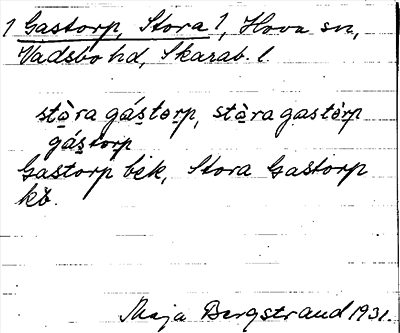 1 Gastorp, Stora 1, Hova sn,
Vadsbo hd, Skarab. l.
stọ̀ra gás̱tọrp, stọ̀ra gas̱tọ́rp
gás̱tọrp
Gastorp bek, Stora Gastorp
kb.
Maja Bergstrand 1931.